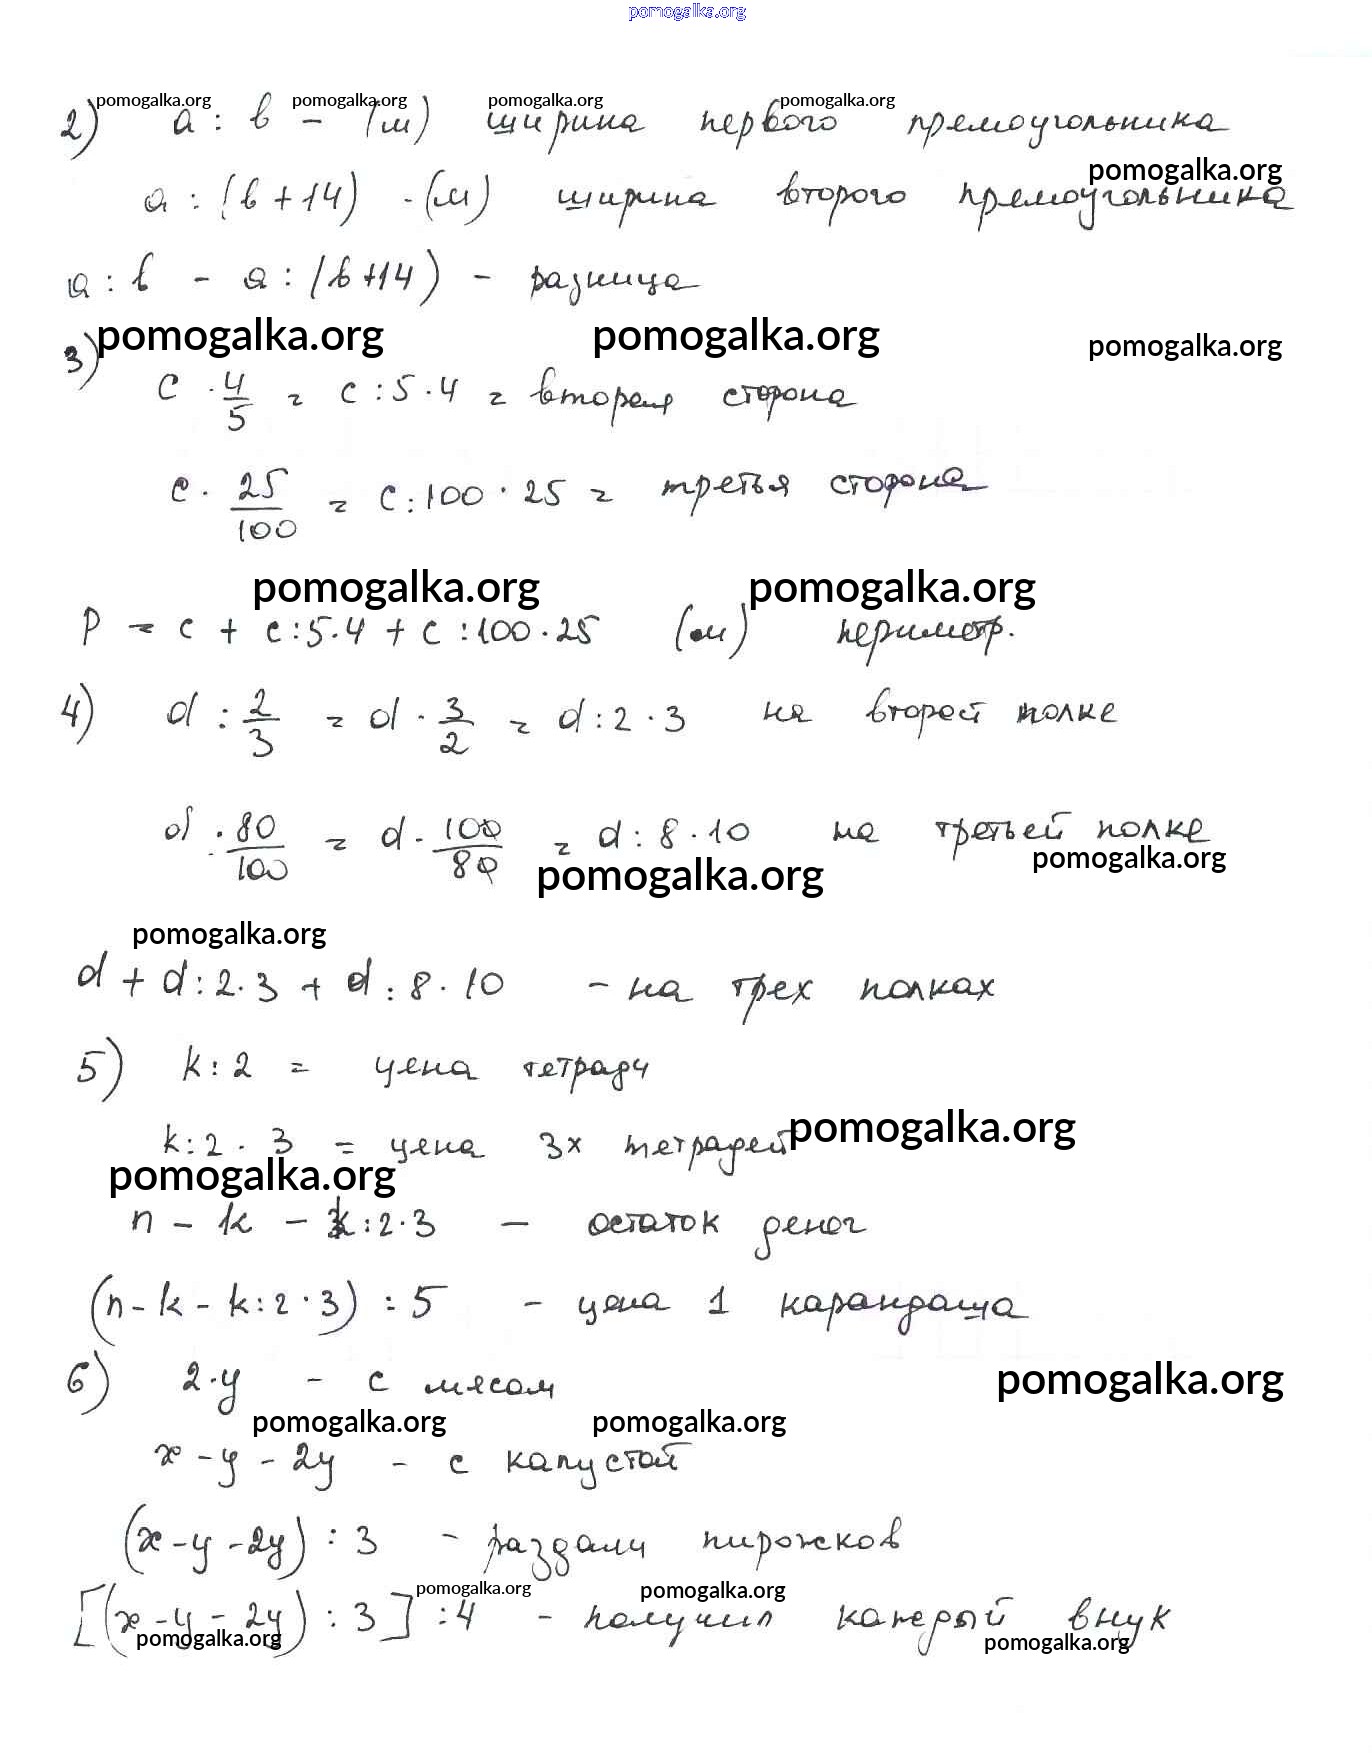 pomogalka.org
pomogalka.org pomogalka.org pomogalka.org pomogalka.org
2) a : b - (м) ширина первого прямоугольника
pomogalka.org
a : (b + 14) - (м) ширина второго прямоугольника
a : b - a : (b + 14) - разница
pomogalka.org pomogalka.org pomogalka.org
3) c · 4/5 = c : 5 · 4 = вторая сторона
c · 25/100 = c : 100 · 25 = третья сторона
pomogalka.org pomogalka.org
P = c + c : 5 · 4 + c : 100 · 25 (м) периметр.
4) d : 2/3 = d · 3/2 = d : 2 · 3 на второй полке
d : 80/100 = d · 100/80 = d : 8 · 10 на третьей полке
pomogalka.org pomogalka.org
pomogalka.org
d + d : 2 · 3 + d : 8 · 10 - на трех полках
5) k : 2 = цена тетради
pomogalka.org
k : 2 · 3 = цена 3х тетрадей
pomogalka.org
n - k - k : 2 · 3 - остаток денег
(n - k - k : 2 · 3) : 5 - цена 1 карандаша
6) 2 · y - с мясом
pomogalka.org
pomogalka.org pomogalka.org
x - y - 2y - с капустой
(x - y - 2y) : 3 - раздали пирожков
pomogalka.org pomogalka.org
[(x - y - 2y) : 3] : 4 - получил каждый внук
pomogalka.org pomogalka.org